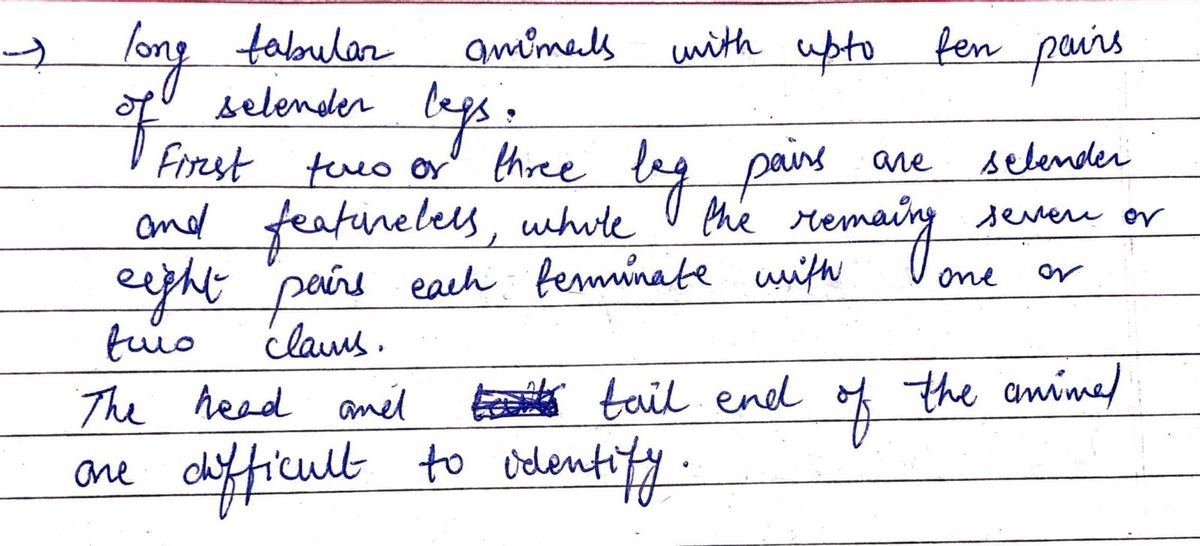 → long tabular animals with upto ten pairs
of selender legs.
First two or three leg pairs are selender
and featureless, while the remaing seven or
eight pairs each terminate with one or
two claws.
The head and tail end of the animal
are difficult to identify.